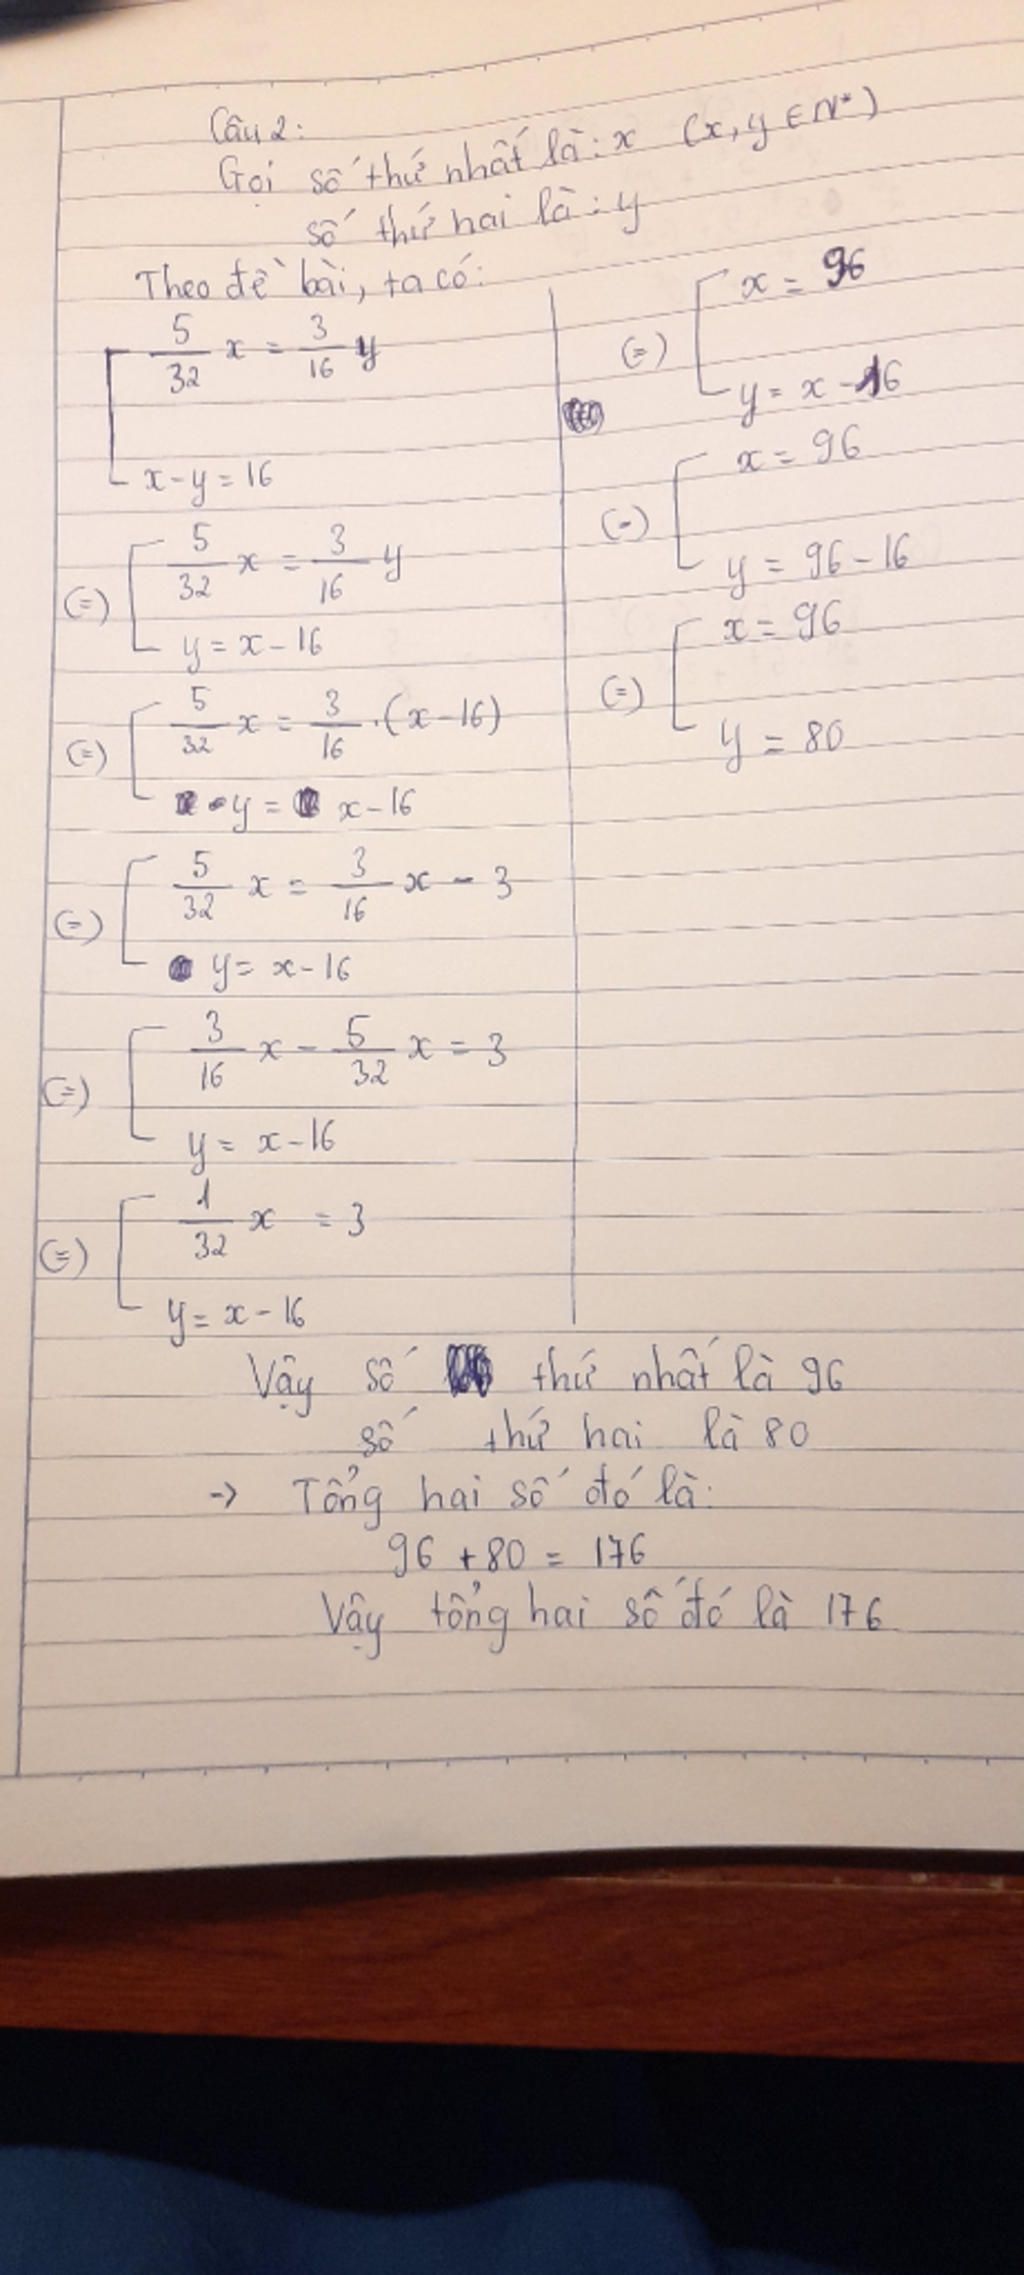 Câu 2:
Gọi số thứ nhất là: x (x, y ∈ N*)
số thứ hai là: y
Theo đề bài, ta có:
5/32 x = 3/16 y
x - y = 16
(=) 5/32 x = 3/16 y
y = x - 16
(=) 5/32 x = 3/16 .(x - 16)
y = x - 16
(=) 5/32 x = 3/16 x - 3
y = x - 16
(=) 3/16 x - 5/32 x = 3
y = x - 16
(=) 1/32 x = 3
y = x - 16
(=) x = 96
y = x - 16
(=) x = 96
y = 96 - 16
(=) x = 96
y = 80
Vậy số thứ nhất là 96
số thứ hai là 80
-> Tổng hai số đó là:
96 + 80 = 176
Vậy tổng hai số đó là 176